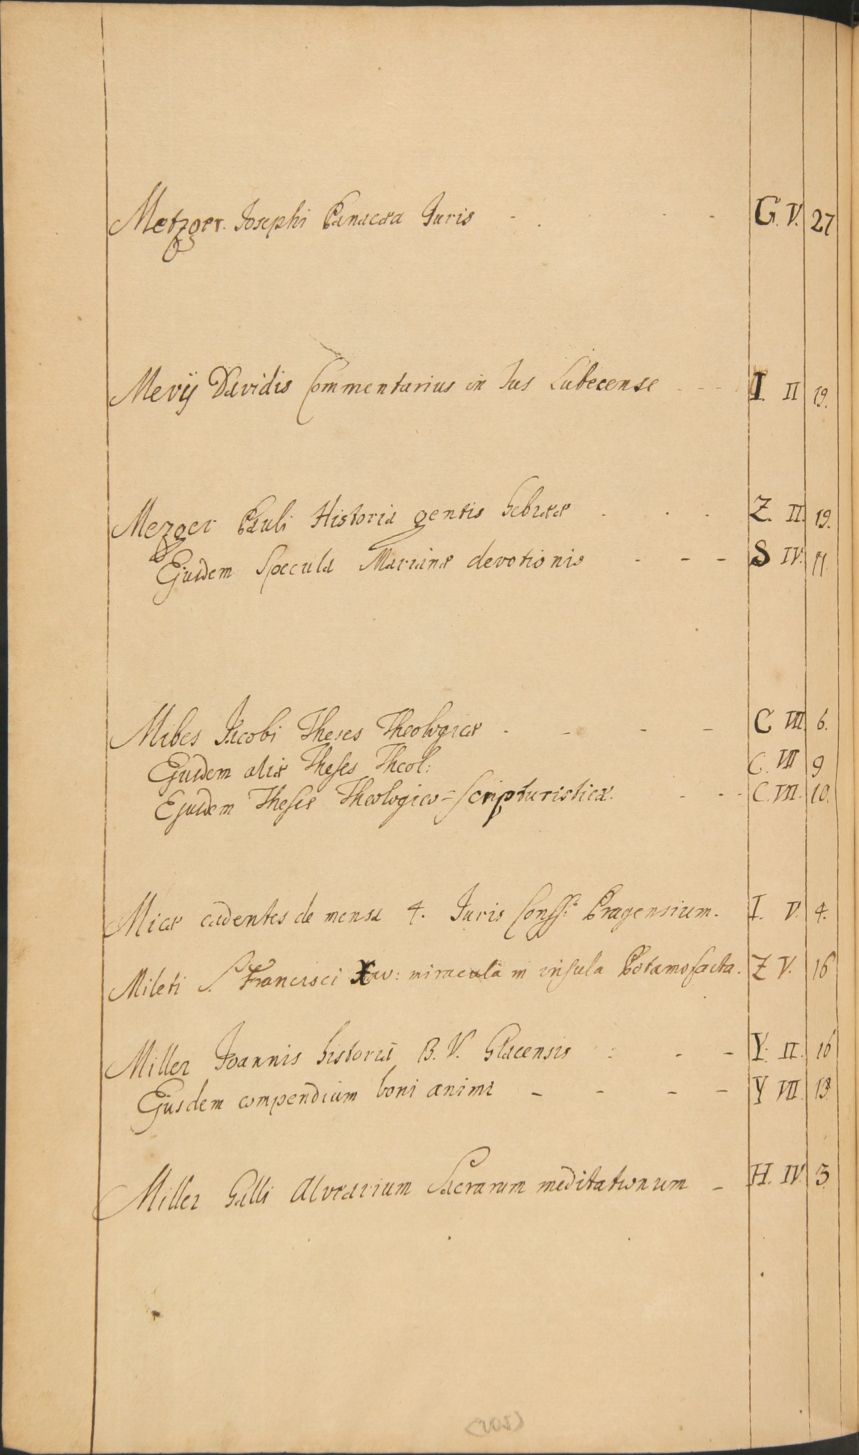 Metzger Josephi Panacæa Juris - - - G. V. 27
Mevij Davidis Commentarius in Jus Lubecense - - - I. II 19.
Mezger Pauli Historia gentis hebrææ - - - Z. II. 19.
Ejusdem Specula Marianæ devotionis - - - S IV. 11
Mibes Jacobi Theses Theologicæ - - - - C VII. 6.
Ejusdem aliæ Theses Theol: C. VII 9
Ejusdem Theses Theologico-Scripturisticæ. - - - C. VII. 10.
Micæ cadentes de mensa 4. Juris Conss: Pragensium. I. V. 4.
Mileti S. Francisci Xav: miracula in insula Potamo facta. Z V. 16
Miller Joannis historia B. V. Glacensis - - - Y. II. 16
Ejusdem compendium boni animi - - - - Y VII. 13
Miller Galli Alvearium Sacrarum meditationum - H. IV. 3